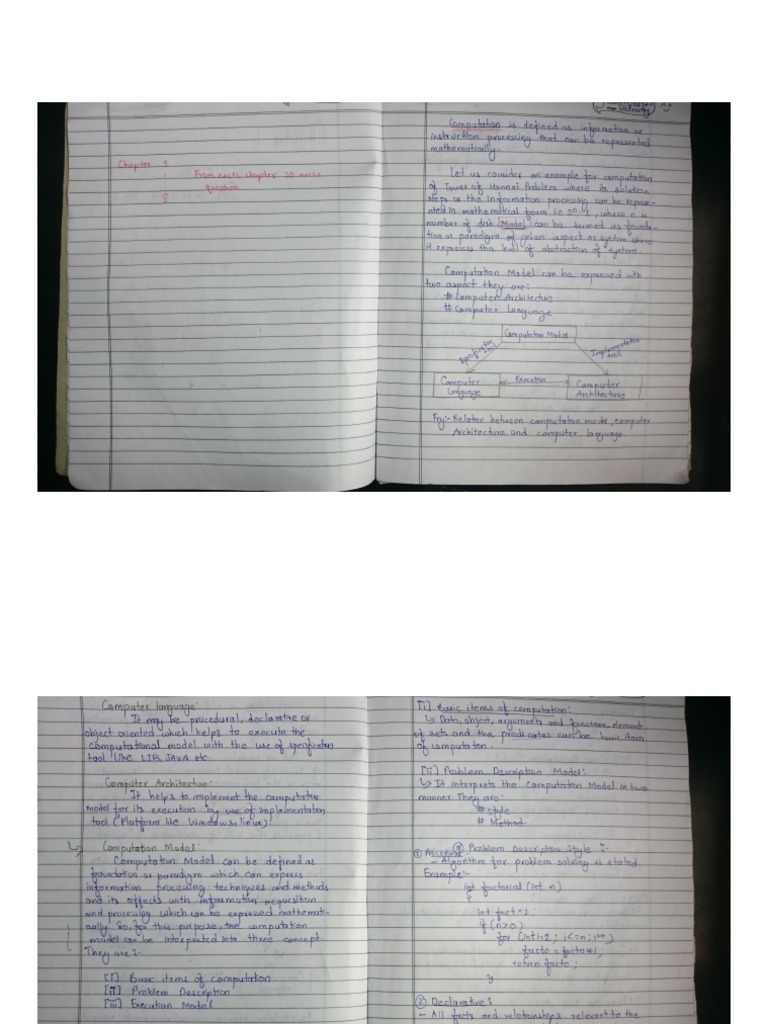 Chapter 1
From each chapter 10 marks
question
8
Computation is defined as information or
instruction processing that can be represented
mathematically.
Let us consider an example for computation
of Tower of Hannoi Problem where its solution
steps or the information processing can be represe-
nted in mathematical form i.e 2ⁿ-1, where n is
number of disk. Model can be termed as founda-
tion or paradigm of given aspect or system where
it expresses the level of abstraction of system.
Computation Model can be expressed with
two aspect they are:
# Computer Architecture
# Computer Language
Computation Model
Specification
tool
Implementation
tool
Computer
Language
Execution
Computer
Architecture
Fig:- Relation between computation model, computer
Architecture and computer language
Computer language:
It may be procedural, declarative or
object oriented which helps to execute the
computational model with the use of specification
tool like LISP, JAVA etc
Computer Architecture:
It helps to implement the computation
model for its execution by use of implementation
tool (Platform like Windows, linux)
↳ Computation Model:
Computation Model can be defined as
foundation or paradigm which can express
information processing techniques and methods
and its effects with information acquisition
and processing which can be expressed mathemati-
cally. So, for this purpose, the computation
model can be interpreted into three concept.
They are:-
[i] Basic items of computation
[ii] Problem Description
[iii] Execution Model
[i] Basic items of computation:
↳ Data, object, arguments and function, element
of sets and the predicates can be basic item
of computation.
[ii] Problem Description Model:
↳ It interprets the Computation Model in two
manner. They are:
# style
# Method
ⓐ Problem Description Style :-
① Procedural
- Algorithm for problem solving is stated.
Example:-
int factorial (int n)
{
int fact=1;
if (n>0)
for (int i=2; i<=n; i++)
facto = facto*i;
return facto;
}
② Declarative:
- All facts and relationships relevant to the